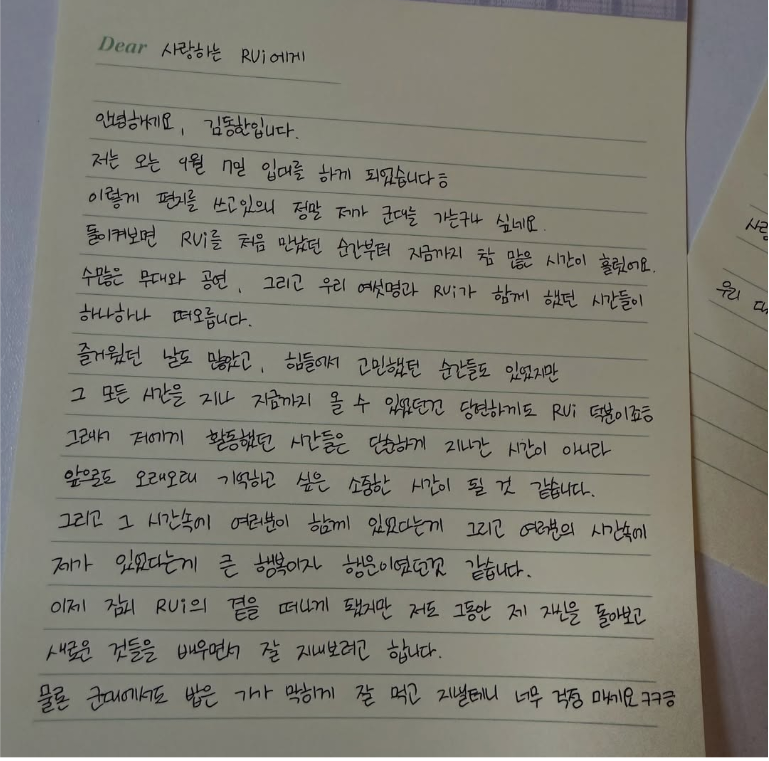 Dear 사랑하는 RUi에게
안녕하세요, 김동한입니다.
저는 오는 9월 7일 입대를 하게 되었습니다ㅎ
이렇게 편지를 쓰고있으니 정말 제가 군대를 가는구나 싶네요.
돌이켜보면 RUi를 처음 만났던 순간부터 지금까지 참 많은 시간이 흘렀어요.
수많은 무대와 공연, 그리고 우리 여섯명과 RUi가 함께 했던 시간들이
하나하나 떠오릅니다.
즐거웠던 날도 많았고, 힘들어서 고민했던 순간들도 있었지만
그 모든 시간을 지나 지금까지 올 수 있었던건 당연하게도 RUi 덕분이죠ㅎ
그래서 저에게 활동했던 시간들은 단순하게 지나간 시간이 아니라
앞으로도 오래오래 기억하고 싶은 소중한 시간이 될 것 같습니다.
그리고 그 시간속에 여러분이 함께 있었다는게 그리고 여러분의 시간속에
제가 있었다는게 큰 행복이자 행운이였던것 같습니다.
이제 잠시 RUi의 곁을 떠나게 됐지만 저도 그동안 제 자신을 돌아보고
새로운 것들을 배우면서 잘 지내보려고 합니다.
물론 군대에서도 밥은 기가 막히게 잘 먹고 지낼테니 너무 걱정 마세요ㅋㅋㅎ
우리